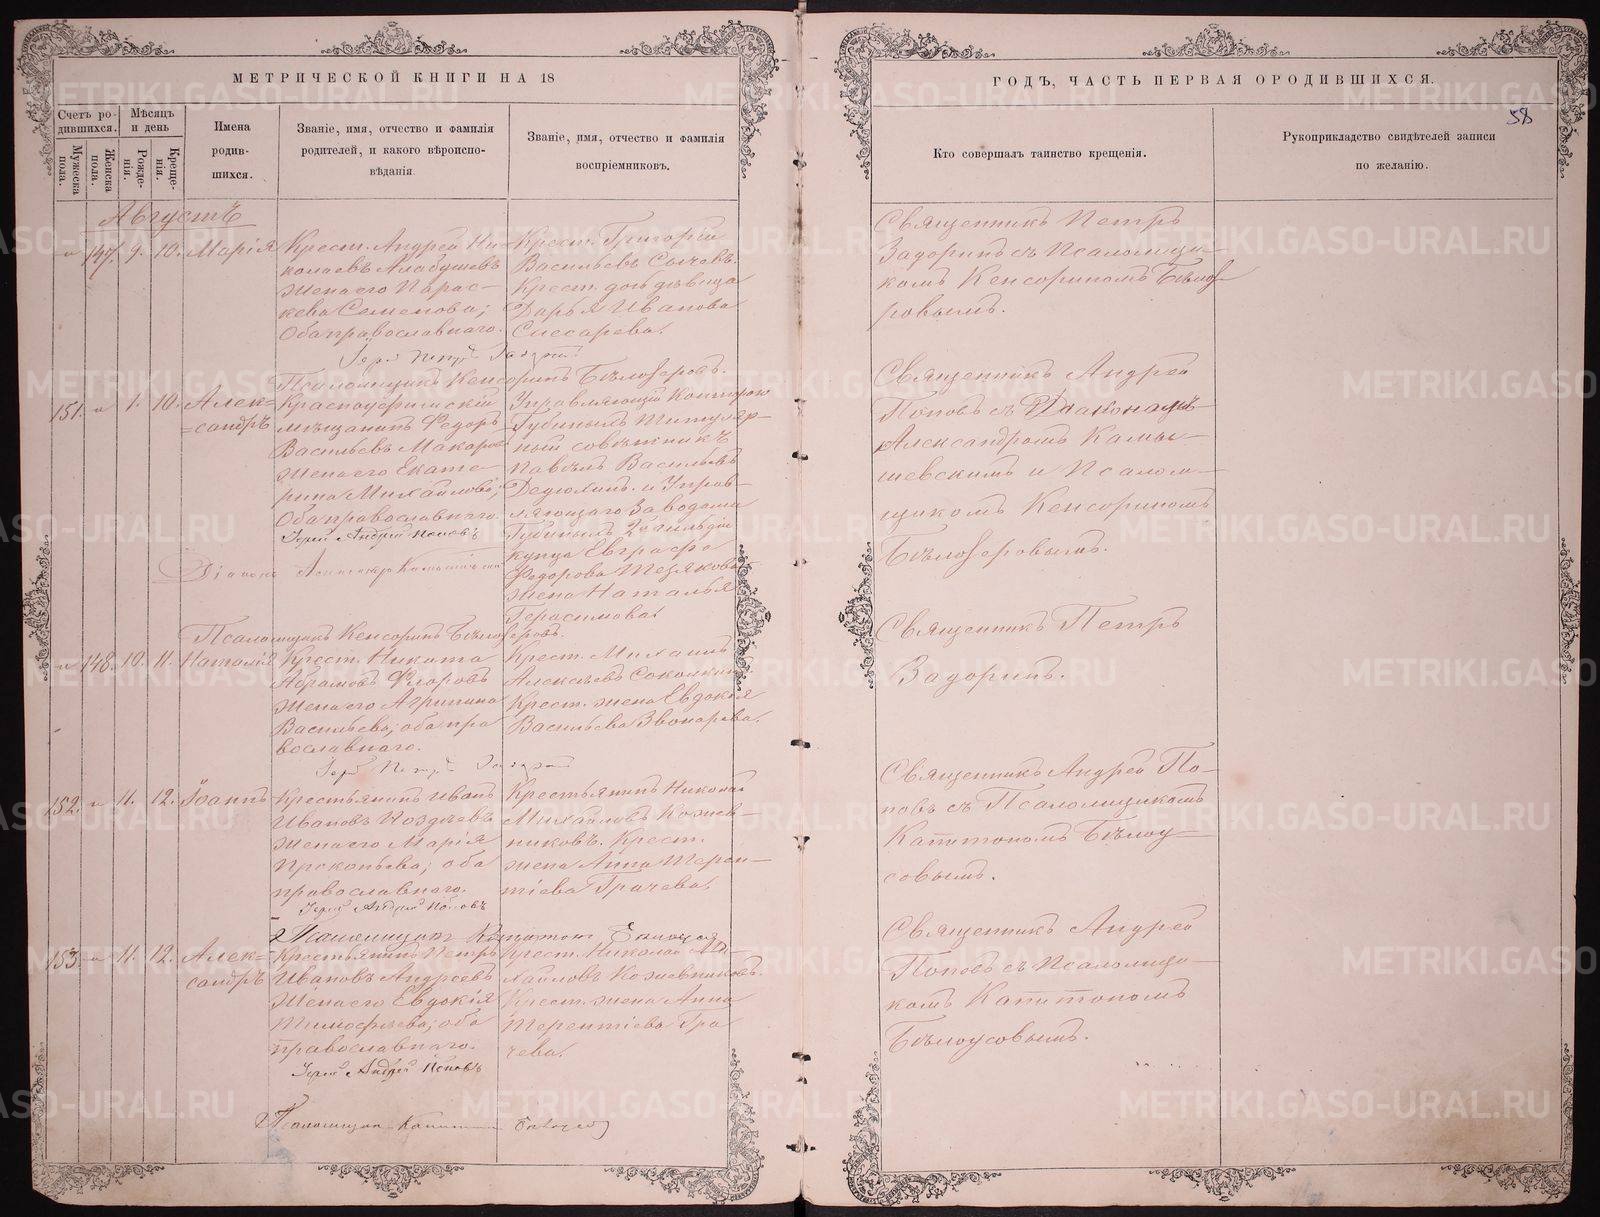 МЕТРИЧЕСКОЙ КНИГИ НА 18
ГОДЪ, ЧАСТЬ ПЕРВАЯ ОРОДИВШИХСЯ.
58
Счетъ ро-
дившихся.
Мужеска
пола.
Женска
пола.
Мѣсяцъ
и день
Рожде-
нія.
Креще-
нія.
Имена
родив-
шихся.
Званіе, имя, отчество и фамилія
родителей, и какого вѣроиспо-
вѣданія
Званіе, имя, отчество и фамилія
воспріемниковъ.
Кто совершалъ таинство крещенія.
Рукоприкладство свидѣтелей записи
по желанію.
Августъ
147. 9. 10. Марія
Крест. Андрей Ни-
колаевъ Алабушевъ
жена его Парас-
кева Семенова;
Оба православнаго.
Крест. Григорій
Васильевъ Сычевъ.
Крест. дѣвица
Дарья Иванова
Слесарева.
Священникъ Петръ
Задоринъ съ Псаломщи-
комъ Кенсориномъ Бѣлозе-
ровымъ.
Псаломщикъ Кенсоринъ Бѣлозеровъ.
151. 1. 10. Алек-
сандръ
Красноуфимскій
мѣщанинъ Федоръ
Васильевъ Макаровъ
жена его Екате-
рина Михайлова;
Оба православнаго.
Іерей Андрей Поповъ
Управляющій Конторою
Губиныхъ Титуляр-
ный совѣтникъ
Павелъ Васильевъ
Дедюхинъ и Управ-
ляющаго Заводами
Губиныхъ 2й гильдіи
купца Евграфа
Федорова Тезякова
жена Наталья
Герасимова.
Священникъ Андрей
Поповъ съ Діакономъ
Александромъ Камы-
шевскимъ и Псалом-
щикомъ Кенсориномъ
Бѣлозеровымъ.
Псаломщикъ Кенсоринъ Бѣлозеровъ.
148. 10. 11. Наталія
Крест. Никита
Абрамовъ Флоровъ
жена его Агрипина
Васильева; оба пра
вославнаго.
Крест. Михаилъ
Алексѣевъ Соколкинъ
Крест. жена Евдокія
Васильева Звонарева.
Священникъ Петръ
Задоринъ.
152. 11. 12. Іоаннъ
Крестьянинъ Иванъ
Ивановъ Ноздревъ
жена его Марія
Прокопьева; оба
православнаго.
Іерей Андрей Поповъ
Крестьянинъ Николай
Михайловъ Кожев-
никовъ. Крест.
жена Анна Терен-
тіева Грачева.
Священникъ Андрей По-
повъ съ Псаломщикомъ
Капитономъ Бѣлоу-
совымъ.
153. 11. 12. Алек-
сандръ
Крестьянинъ Петръ
Ивановъ Андреевъ
жена его Евдокія
Тимофѣева; оба
православнаго.
Іерей Андрей Поповъ
Крест. Николай Ми-
хайловъ Кожевниковъ.
Крест. жена Анна
Терентіева Гра
чева.
Священникъ Андрей
Поповъ съ Псаломщи-
комъ Капитономъ
Бѣлоусовымъ.
METRIKI.GASO-URAL.RU